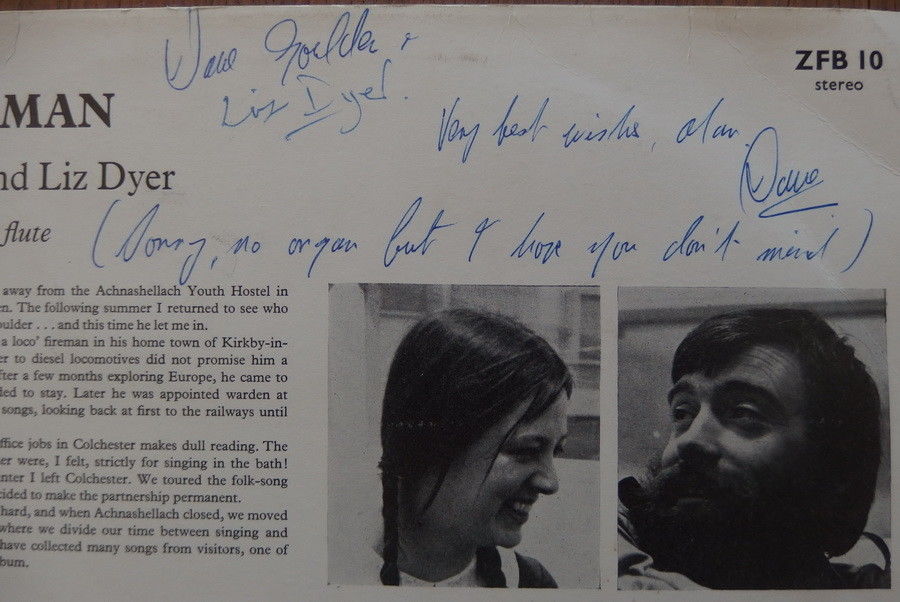 Dave Goulder &
Liz Dyer.
ZFB 10
stereo
MAN
Very best wishes, Alan
nd Liz Dyer
Dave
flute
(Sorry, no organ but I hope you don't mind)
away from the Achnashellach Youth Hostel in
en. The following summer I returned to see who
oulder . . . and this time he let me in.
a loco' fireman in his home town of Kirkby-in-
er to diesel locomotives did not promise him a
fter a few months exploring Europe, he came to
ded to stay. Later he was appointed warden at
songs, looking back at first to the railways until
ffice jobs in Colchester makes dull reading. The
er were, I felt, strictly for singing in the bath!
nter I left Colchester. We toured the folk-song
cided to make the partnership permanent.
hard, and when Achnashellach closed, we moved
where we divide our time between singing and
have collected many songs from visitors, one of
bum.